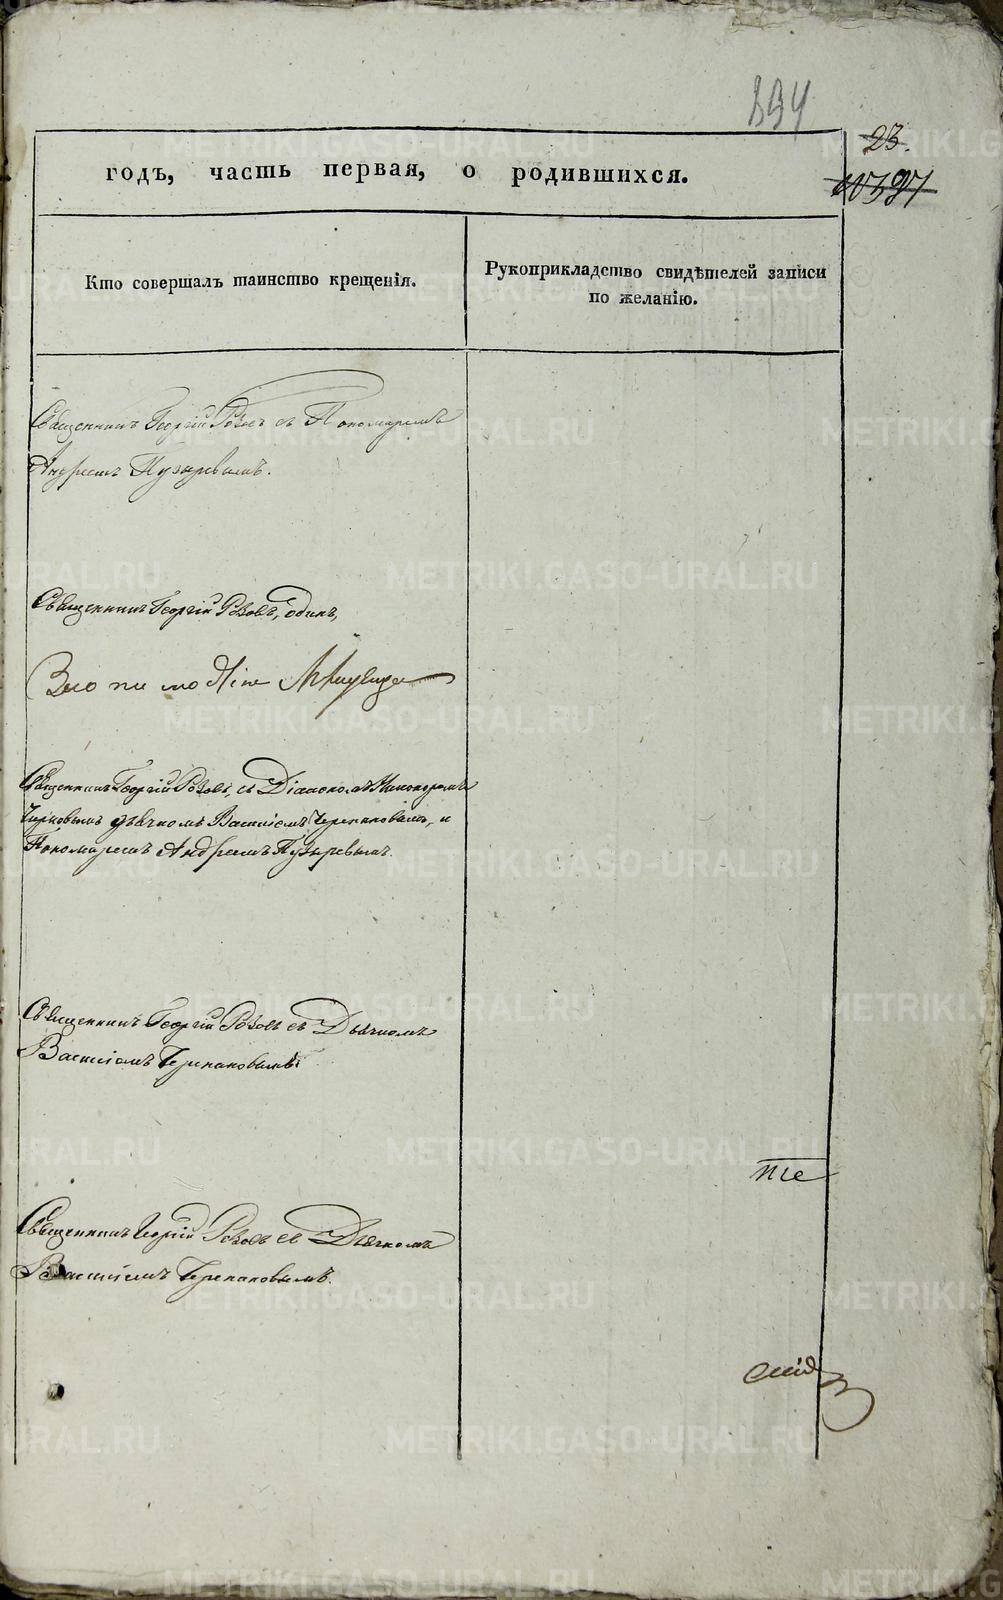 894
23.
годъ, часть первая, о родившихся.
Кто совершалъ таинство крещенія.
Рукоприкладство свидѣтелей записи
по желанію.
Священникъ Георгій Розовъ съ Пономаремъ
Андреемъ Пузыревымъ.
Священникъ Георгій Розовъ, одинъ,
Священникъ Георгій Розовъ, съ Діакономъ Никонором
дьячкомъ Василіемъ Черепановымъ, и
Пономаремъ Андреемъ Пузыревымъ.
Священникъ Георгій Розовъ съ Дьячкомъ
Василіемъ Черепановымъ
Священникъ Георгій Розовъ съ Дьячкомъ
Василіемъ Черепановымъ.
METRIKI.GASO-URAL.RU